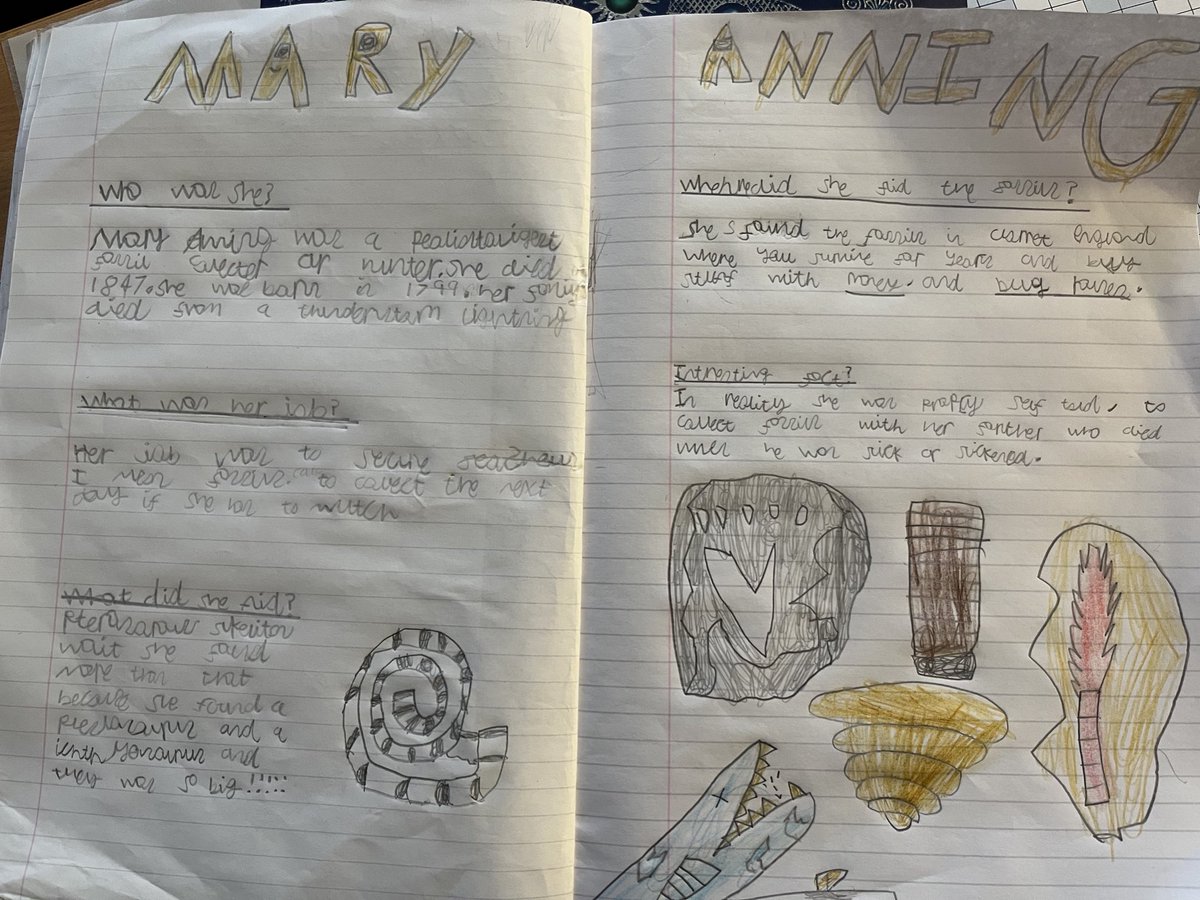 MARY
who was she?
Mary Anning was a
fossil collecter or hunter. she died in
1847. she was barn in 1799. her family
died from a thunderstarm lightning
What was her job?
Her job was to secure
I mean fossils. to collect the next
day if she has to mutch
What did she find?
Pterosaraus
wait she found
more than that
because she found a
and a
and
they was so big !!!!!
ANNING
did she find the fossils?
she found the fossils in England
where you survive for years and
stuff with money. and bug houses.
Intresting fact?
In reality she was self to
collect fossils with her father who died
when he was sick or sickened.